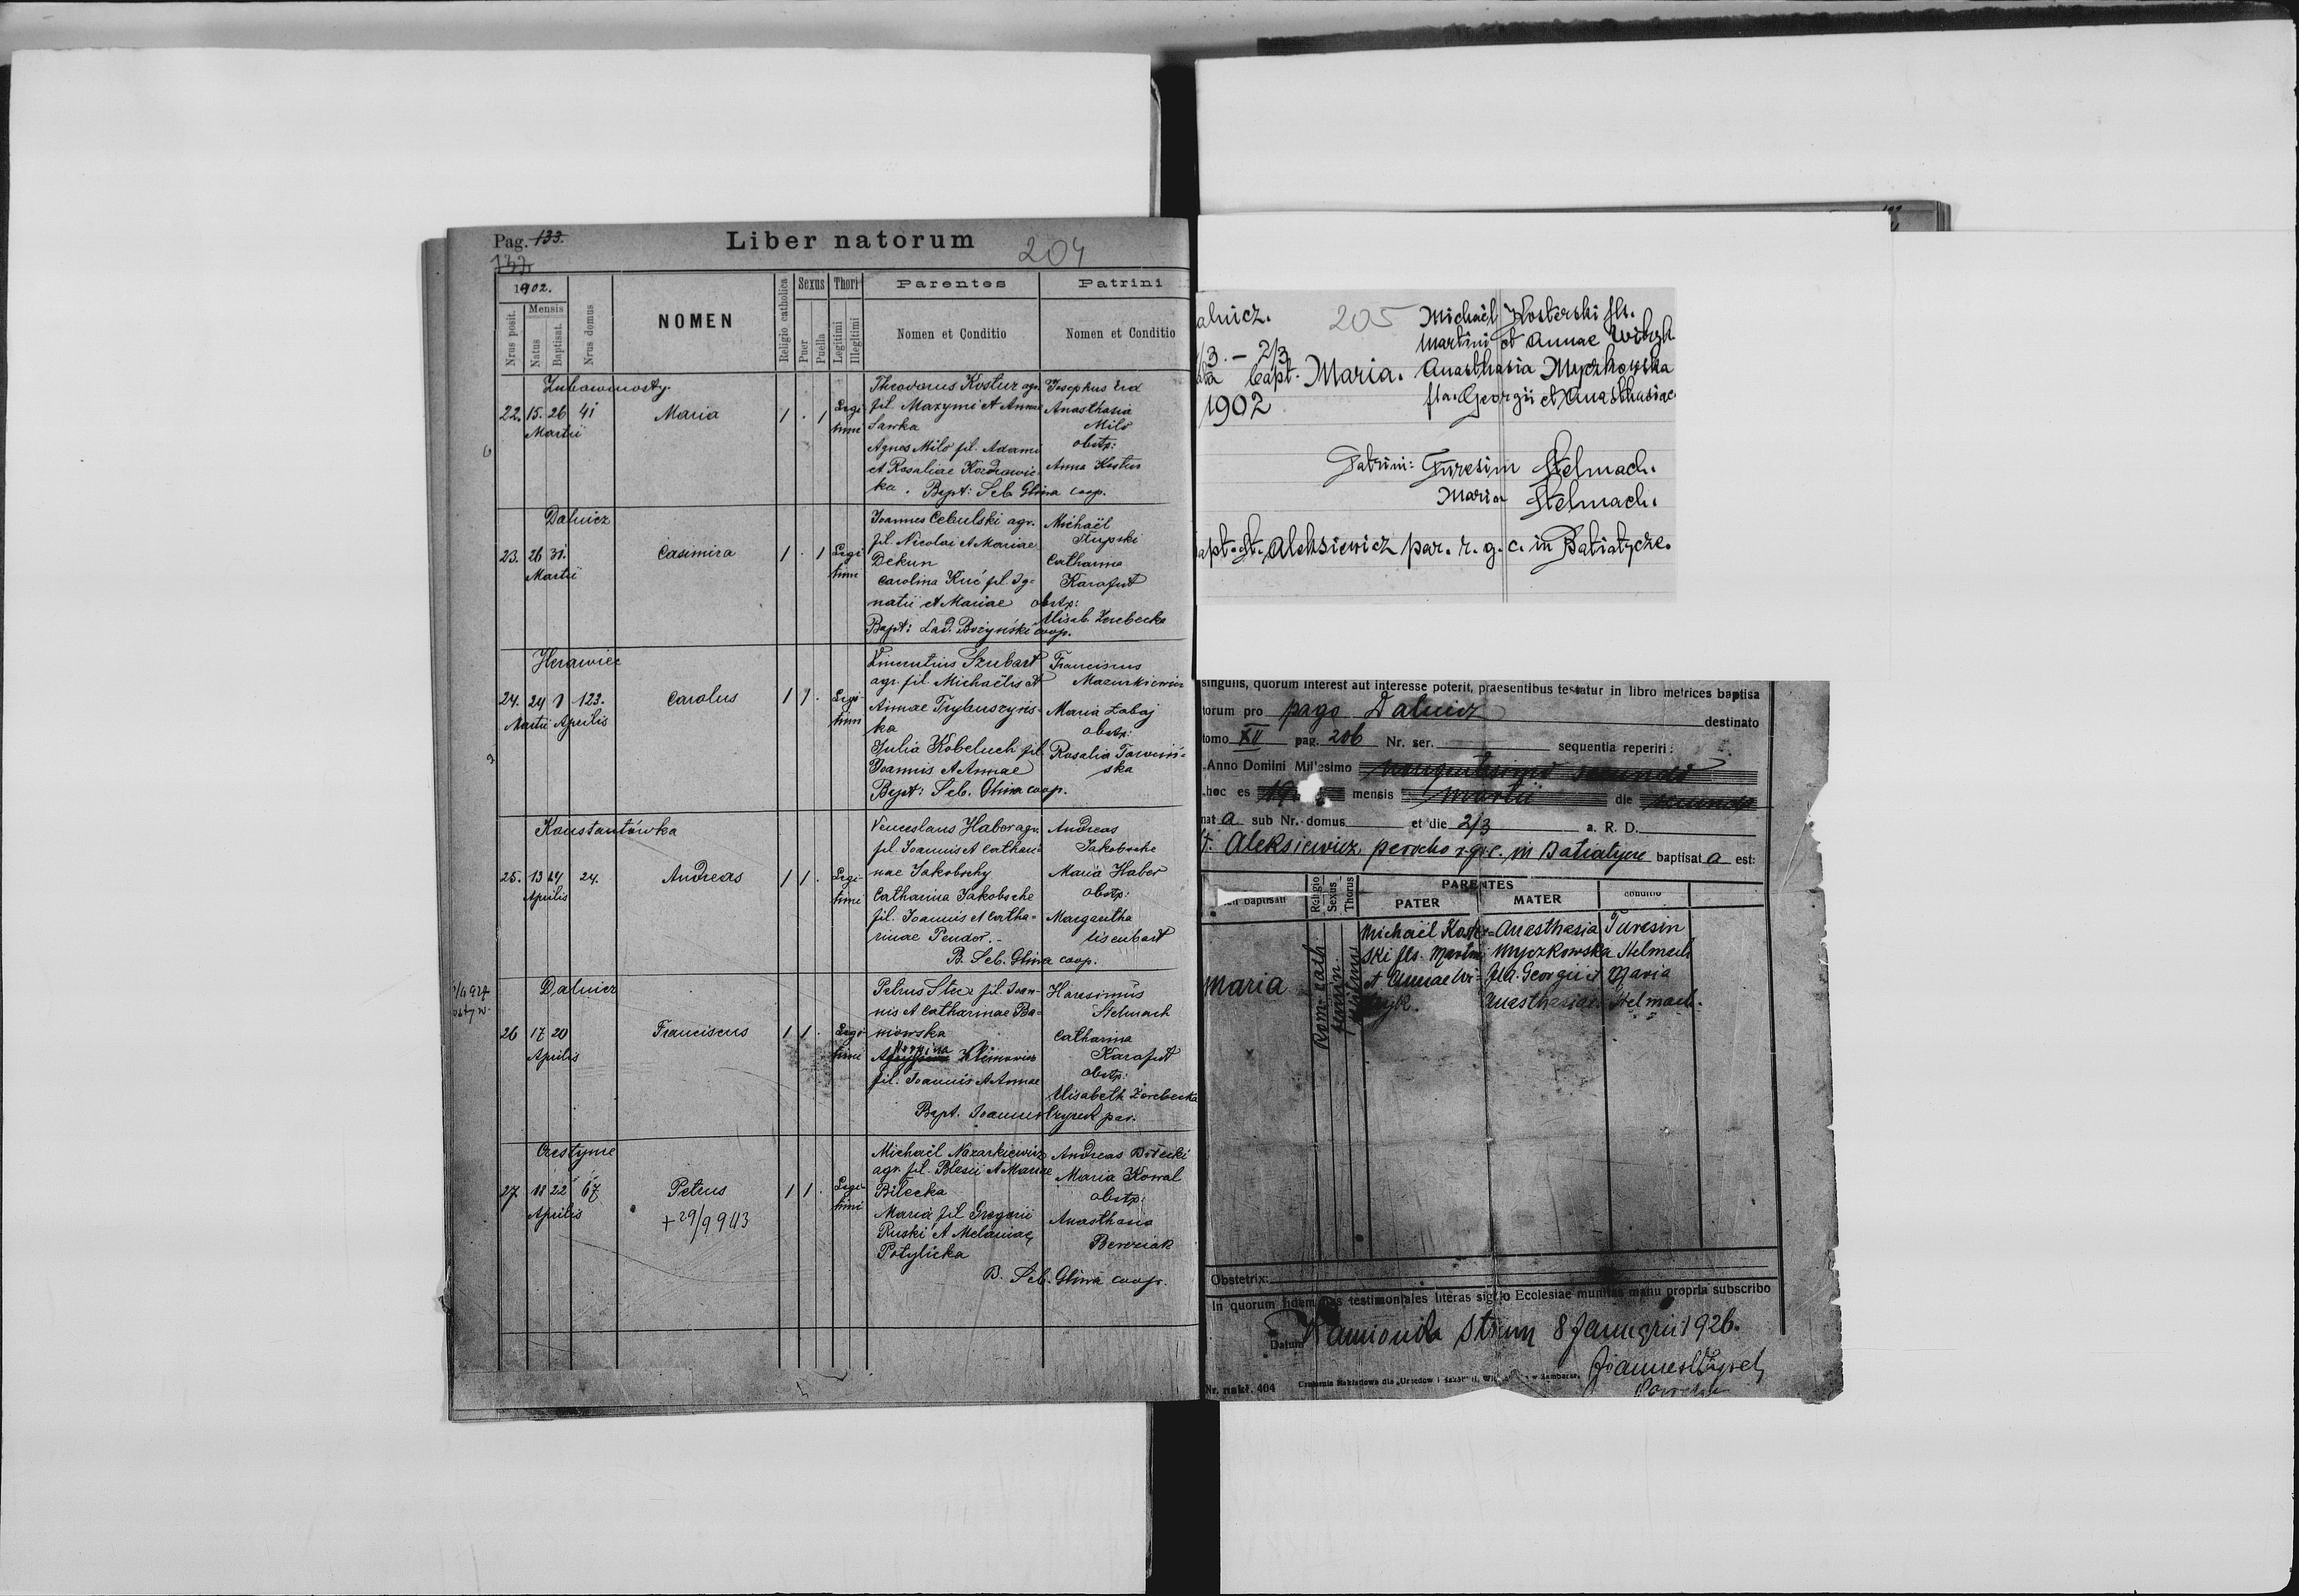 Pag. 133.
Liber natorum
204
1902.
Mensis
Nrus posit.
Natus
Baptisat.
Nrus domus
NOMEN
Religio catholica
Sexus
Puer
Puella
Thori
Legitimi
Illegitimi
Parentes
Nomen et Conditio
Patrini
Nomen et Conditio
22. 15. 26 41 Maria 1 . 1 Legi
Martii timi
Theodorus Kostur agr.
fil. Maxymi et Annae
Sawka
Agnes Milo fil. Adami
et Rosaliae
ka. Bapt: Seb. Glina coop.
Josephus
Anasthasia
Milo
obstp:
Anna Kostur
Dalnicz
23. 26 31. Casimira 1 . 1 Legi
Martii timi
Joannes Cebulski agr.
fil. Nicolai et Mariae
Dekun
Carolina Kuć fil. Ig=
natii et Mariae
Bapt: Lad. Bożyński coop.
Michaël
Słupski
Catharina
Karafut
obstp:
Elisab.
24. 24 1 123. Carolus 1 1 . Legi
Martii Aprilis timi
Vincentius Szubart
agr. fil. Michaëlis et
Annae Trybuszyńs=
ka
Julia Kobeluch fil.
Joannis et Annae
Bapt: Seb. Glina coop.
Franciscus
Mazurkiewicz
Maria Zabaj
obstp:
Rosalia
ska
Konstantówka
25. 13 14 24. Andreas 1 1 . Legi
Aprilis timi
Venceslaus Haber agr.
fil. Joannis et Cathari=
nae Jakobschy
Catharina Jakobsche
fil. Joannis et Catha=
rinae Pendor.-
B. Seb. Glina coop.
Andreas
Jakobsche
Maria Haber
obstp:
Margaretha
Eisenbart
Dalnicz
26 17 20 Franciscus 1 1 . Legi
Aprilis timi
Petrus Stec fil. Joan=
nis et Catharinae Ba=
niowska
Klimowicz
fil. Joannis et Annae
Bapt. Joannes Czyrek par.
Harasimus
Stelmach
Catharina
Karafut
obstp:
Elisabeth Zarebecka
27 18 22 67 Petrus 1 1 . Legi
Aprilis timi
+ 29/9 943
Michaël Nazarkiewicz
agr. fil. Blasii et Mariae
Bilecka
Maria fil Gregorii
Ruski et Melaniae
Potylicka
B. Seb. Glina coop.
Andreas Bilecki
Maria Kowal
obstp:
Anasthasia
Bereziak
alnicz.
205
Michaël Kosterski fls.
Martini et Annae
/3. - 2/3
bapt. Maria. Anasthasia Myczkowska
1902
fla. Georgii et Anasthasiae
Patrini: Turesim Stelmach.
Maria Stelmach.
apt. St. Aleksiewicz par. r. g. c. in Batiatycze.
singulis, quorum interest aut interesse poterit, praesentibus testatur in libro metrices baptisa
torum pro pago Dalnicz destinato
tomo XII pag. 206 Nr. ser. sequentia reperiri:
Anno Domini Millesimo nongentesimo secundo
hoc es 19 mensis Martii die secunda
nat a sub Nr. domus et die 2/3 a. R. D.
St. Aleksiewicz parocho r.g.c. in Batiatycze baptisat a est:
baptisati
Religio
Sexus
Thorus
PARENTES
PATER
MATER
conditio
Maria
Rom. cath
Michaël Koster=
ski fls. Martini
et Annae Wi=
Anasthasia
Myczkowska
fila. Georgii et
Anasthasiae
Turesin
Stelmach
Maria
Stelmach.
Obstetrix:
In quorum fidem has testimoniales literas sigillo Ecclesiae munitas manu propria subscribo
Datum Kamionka Strum 8 Januarii 1926.
Joannes Czyrek
Nr. nakł. 404